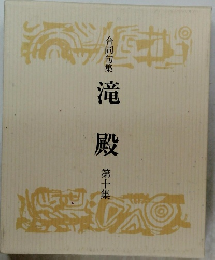 合同句集
滝殿
第十集